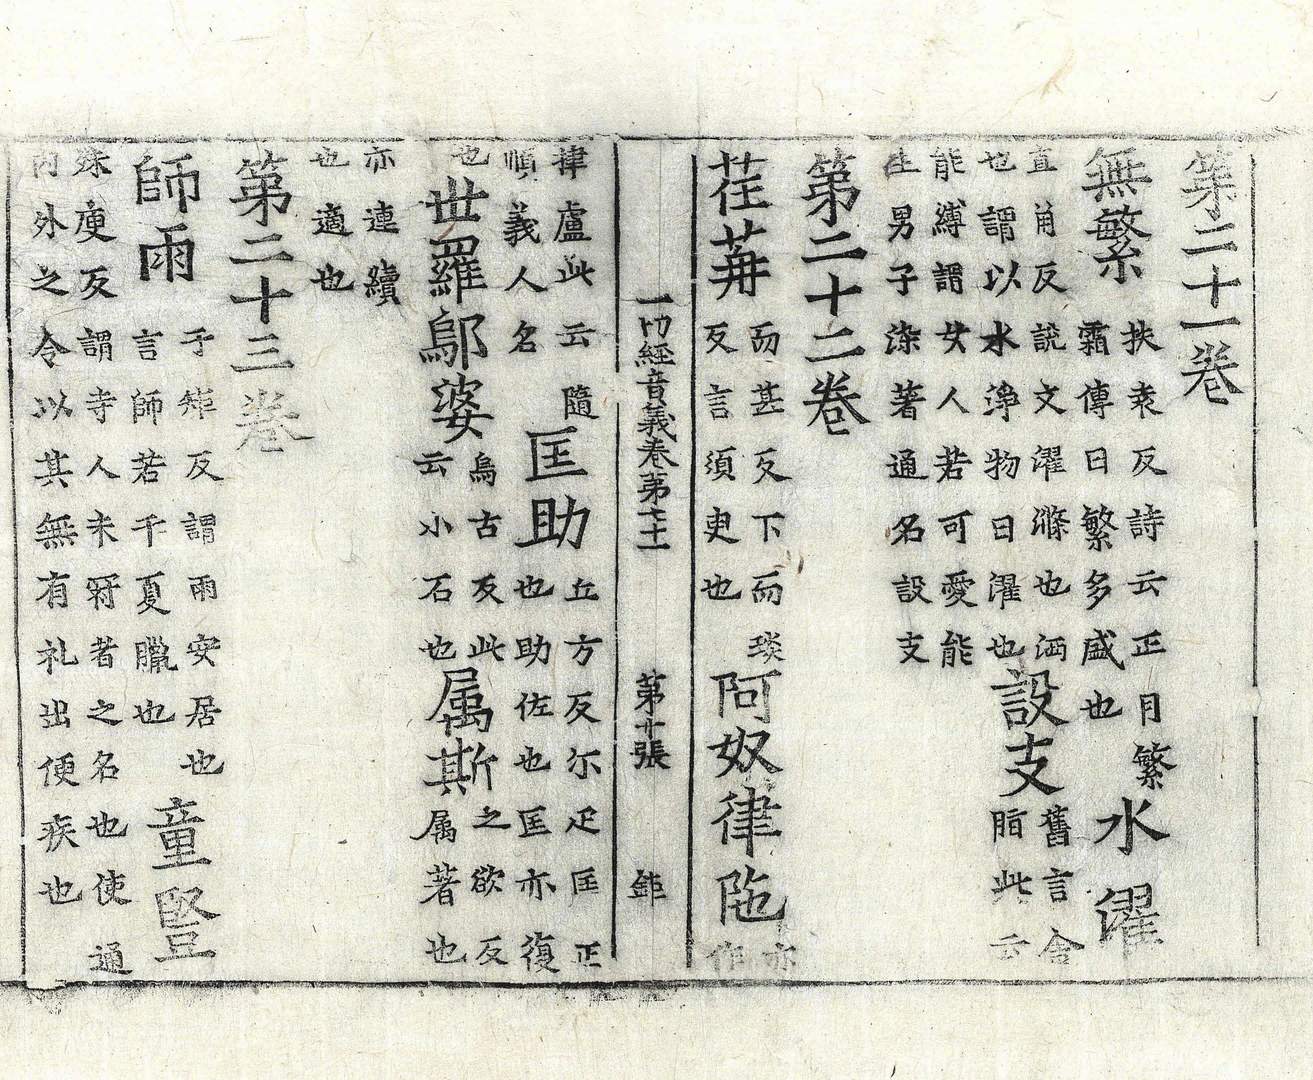 第二十一卷
無繁扶袁反詩云正月繁
霜傳曰繁多盛也水濯
直角反說文濯滌也洒
也謂以水淨物曰濯也設支舊言舍
脂此云
能縛謂女人若可愛能
生男子染著通名設支
第二十二卷
荏苒而甚反下而琰
反言須臾也阿奴律陁亦
作
一切經音義卷第七十一 第廿張 鉅
律盧此云隨
順義人名
也匡助丘方反尒疋匡正
也助佐也匡亦復
也丗羅鄔婆烏古反此
云小石也属斯之欲反
属著也
亦連續
也適也
第二十三卷
師雨于矩反謂雨安居也
言師若干夏臘也童豎
殊庾反謂寺人未冠者之名也使通
內外之令以其無有礼出便疾也